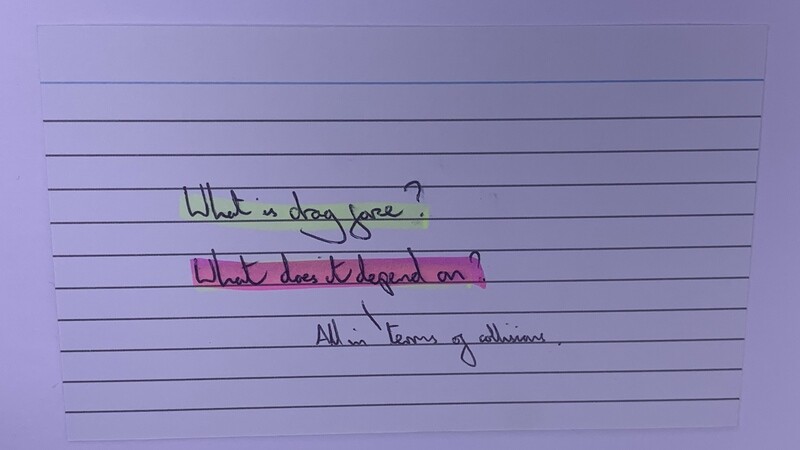 What is drag force?
What does it depend on?
All in terms of collisions.